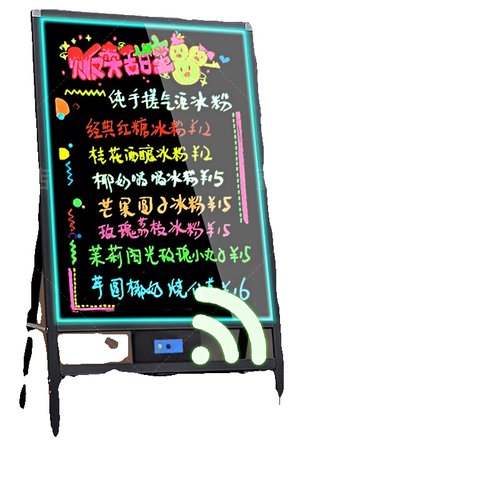 爆卖甜蜜
纯手搓气泡冰粉
经典红糖冰粉¥12
桂花酒酿冰粉¥12
椰奶嗦嗦冰粉¥15
芒果圆子冰粉¥15
玫瑰荔枝冰粉¥15
茉莉阳光玫瑰小丸子¥15
芋圆椰奶烧仙草¥16